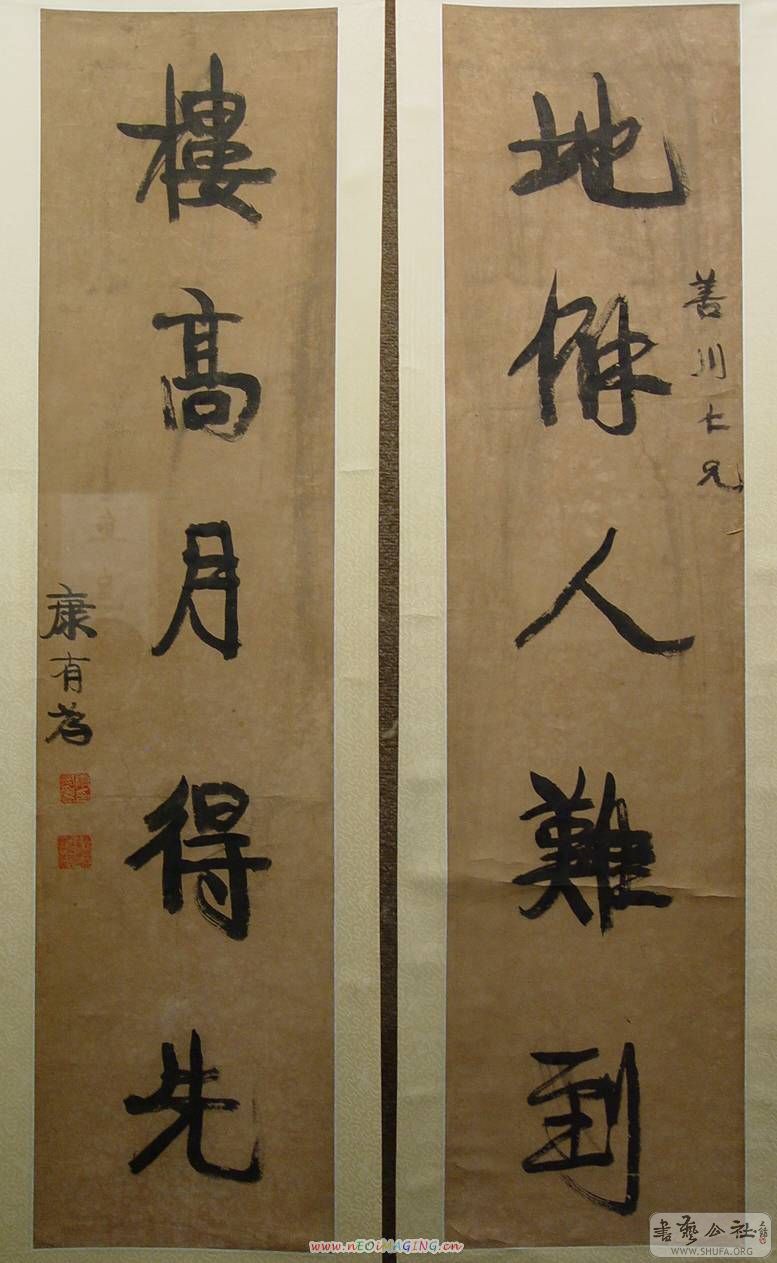 地僻人難到
善川仁兄
樓高月得先
康有為
www.nEOiMAGiNG.cn
書藝公社
WWW.SHUFA.ORG